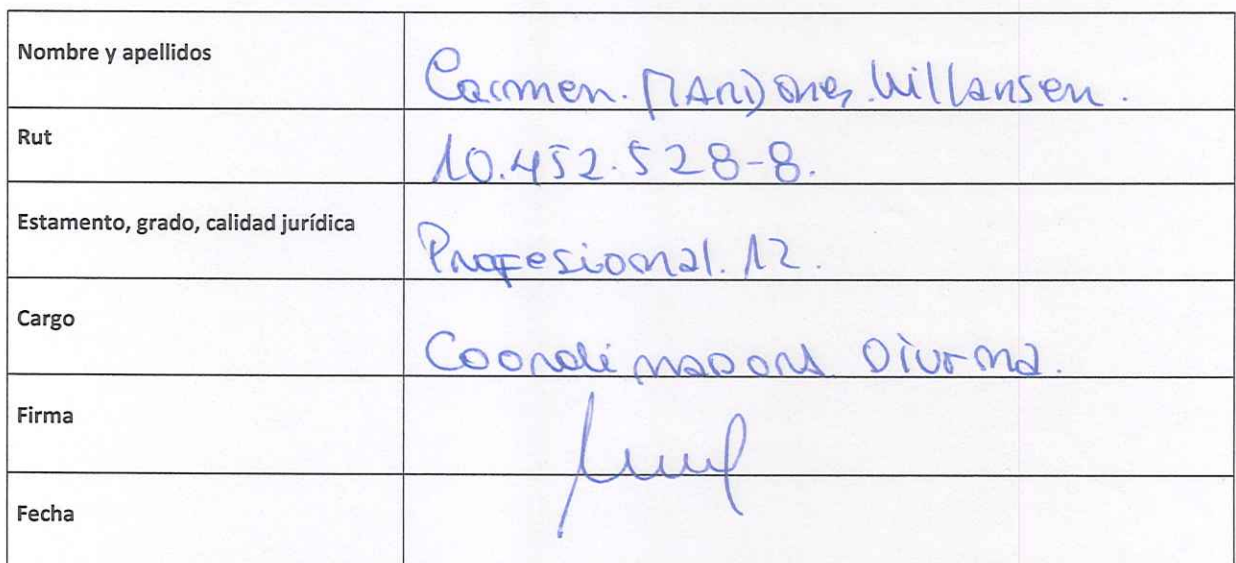 Nombre y apellidos
Carmen. MARDones Willansen.
Rut
10.452.528-8.
Estamento, grado, calidad jurídica
Profesional. 12.
Cargo
Coordinadora Diurna.
Firma
Fecha